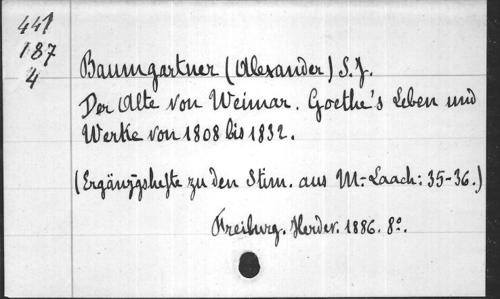 441
187
4
Baumgartner (Alexander) S. J.
Der Alte von Weimar. Goethe's Leben und
Werke von 1808 bis 1832.
(Ergänzgshefte zu den Stim. aus M.-Laach: 35-36.)
Freiburg. Herder. 1886. 8º.